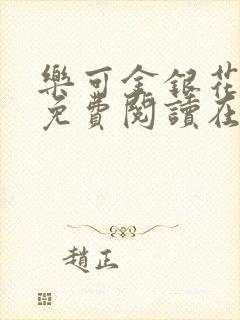 樂可金銀花
免費閱讀在
趙正